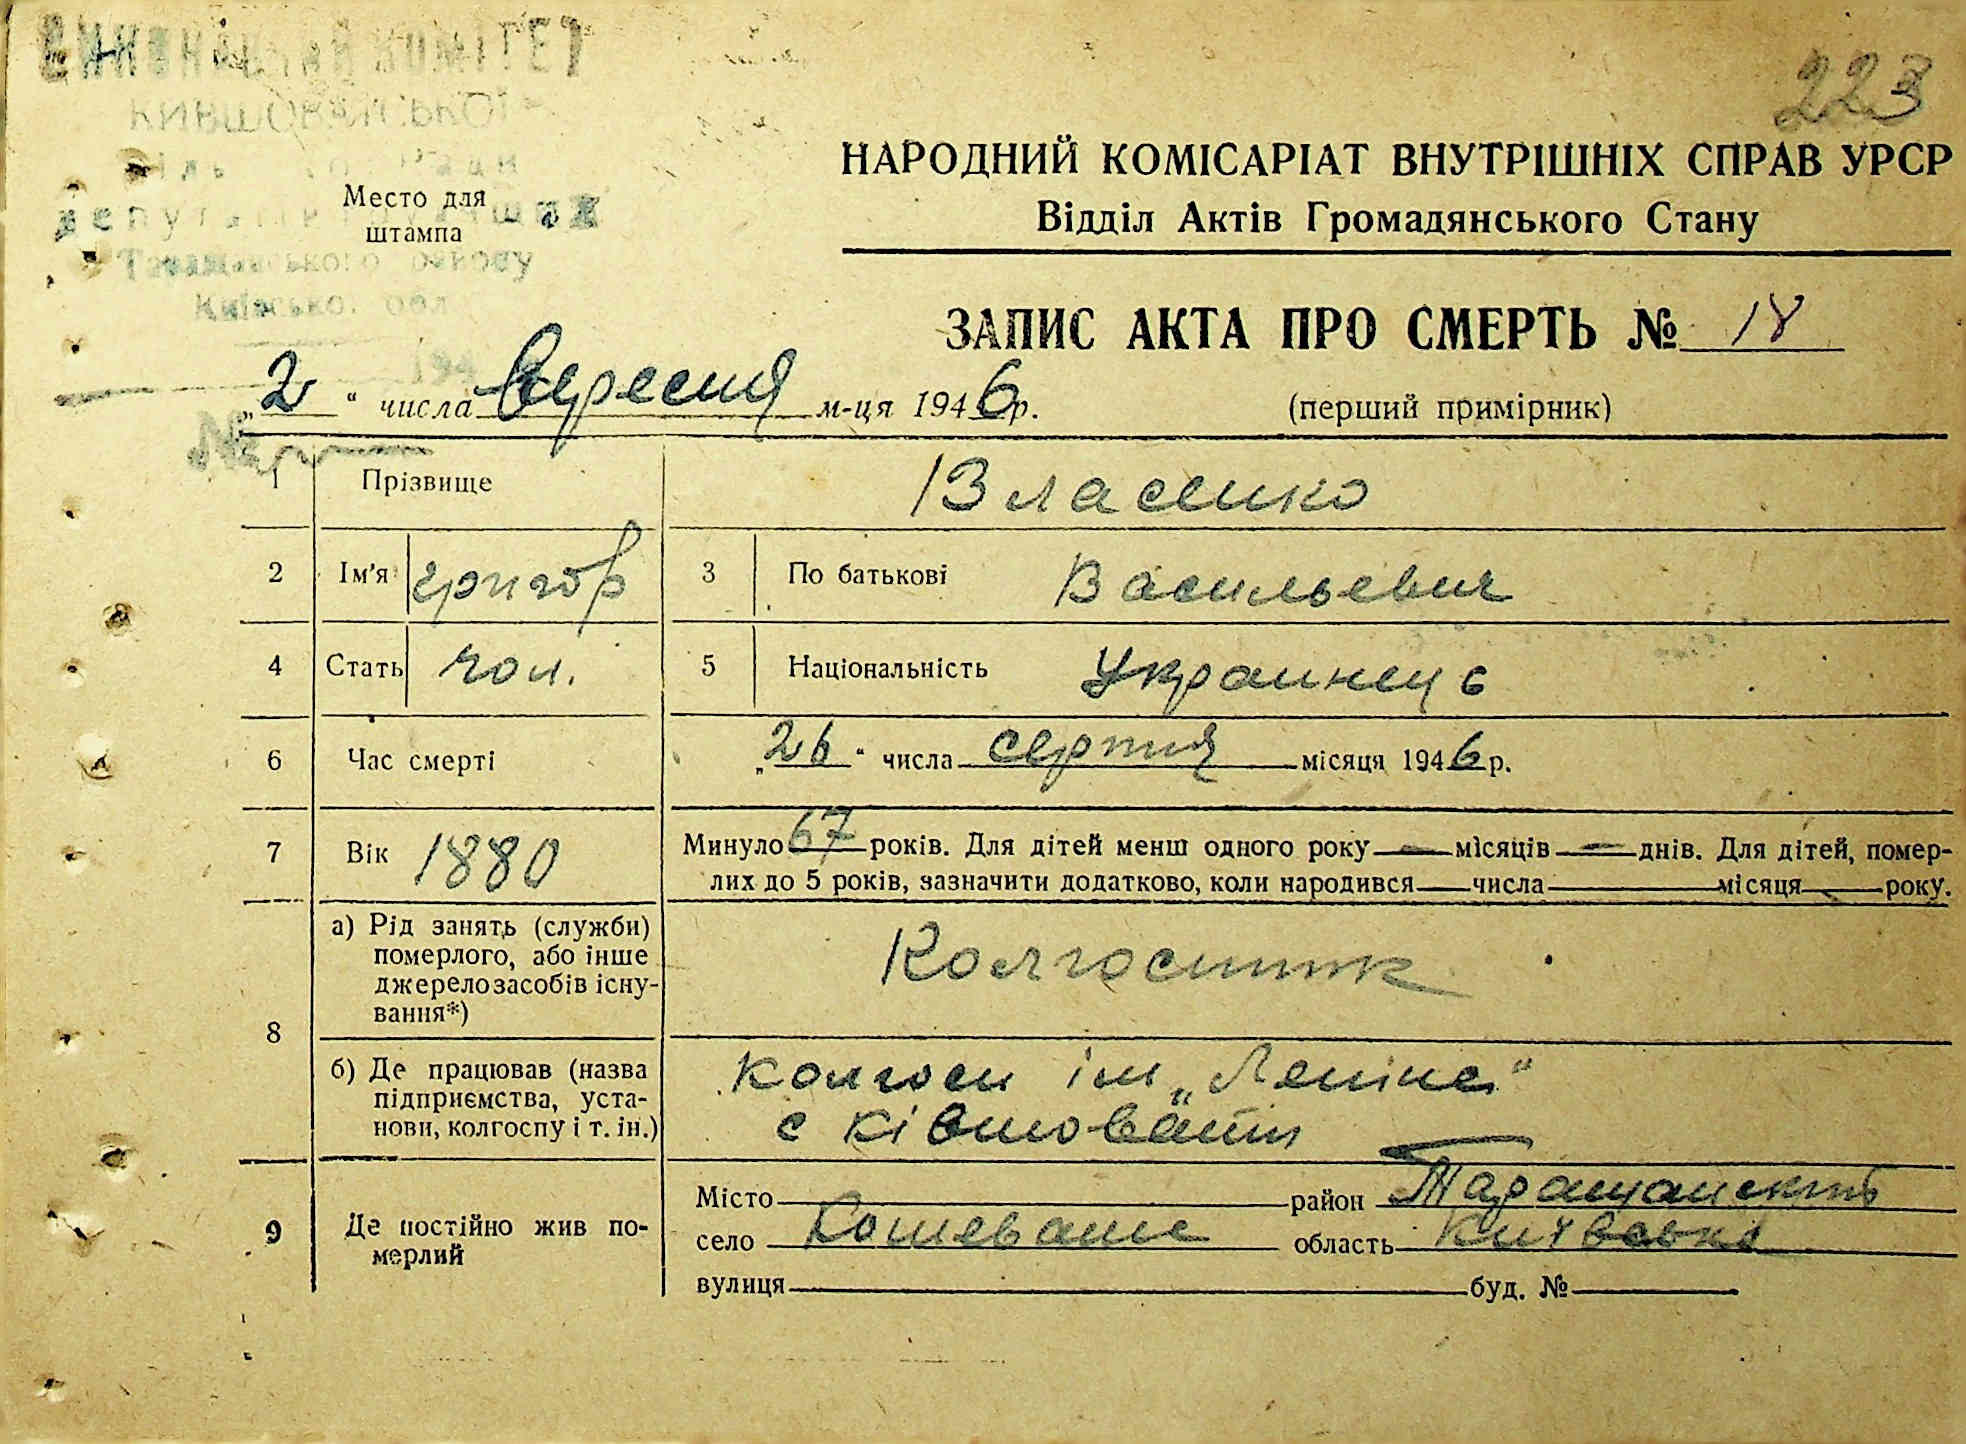 ВИКОНАВЧИЙ КОМІТЕТ
КИВШОВАТСЬКОЇ
депутатів трудящих
Таращанського району
Київсько. обл
194
№
223
Место для
штампа
НАРОДНИЙ КОМІСАРІАТ ВНУТРІШНІХ СПРАВ УРСР
Відділ Актів Громадянського Стану
ЗАПИС АКТА ПРО СМЕРТЬ № 18
„2“ числа Вересня м-ця 1946р.
(перший примірник)
1 Прізвище Власенко
2 Ім'я григор 3 По батькові Васильевич
4 Стать чол. 5 Національність Украинець
6 Час смерті „26“ числа серпня місяця 1946р.
7 Вік 1880 Минуло 67 років. Для дітей менш одного року — місяців — днів. Для дітей, помер-
лих до 5 років, зазначити додатково, коли народився — числа — місяця — року.
8 а) Рід занять (служби)
померлого, або інше
джерело засобів існу-
вання*)
Колгоспник
б) Де працював (назва
підприємства, уста-
нови, колгоспу і т. ін.)
колгосп ім „Леніна“
с Ківшовати
9 Де постійно жив по-
мерлий
Місто район Таращанский
село Кошевате область Київська
вулиця буд. №